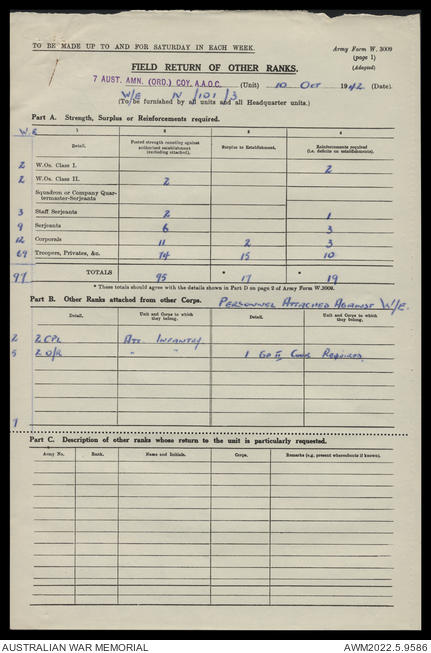 TO BE MADE UP TO AND FOR SATURDAY IN EACH WEEK.
Army Form W. 3009
(page 1)
(Adapted)
FIELD RETURN OF OTHER RANKS.
7 AUST. AMN. (ORD.) COY. A.A.O.C. (Unit) 10 OCT 1942 (Date).
W/E IV /101 /3
(To be furnished by all units and all Headquarter units.)
Part A. Strength, Surplus or Reinforcements required.
W.E. 1 2 3 4
Detail. Posted strength counting against authorized establishment (excluding attached). Surplus to Establishment. Reinforcements required (i.e. deficits on establishments).
2 W.Os. Class I. 2
2 W.Os. Class II. 2
Squadron or Company Quar-
termaster-Serjeants
3 Staff Serjeants 2 1
9 Serjeants 6 3
12 Corporals 11 2 3
69 Troopers, Privates, &c. 74 15 10
97 TOTALS 95 * 17 * 19
* These totals should agree with the details shown in Part D on page 2 of Army Form W.3009.
Part B. Other Ranks attached from other Corps. PERSONNEL ATTACHED AGAINST W/E.
Detail. Unit and Corps to which they belong. Detail. Unit and Corps to which they belong.
2 2 CPL ATT. INFANTRY
5 2 O/R " " 1 GP II COOK REQUIRED
7
Part C. Description of other ranks whose return to the unit is particularly requested.
Army No. Rank. Name and Initials. Corps. Remarks (e.g. present whereabouts if known).
AUSTRALIAN WAR MEMORIAL AWM2022.5.9586